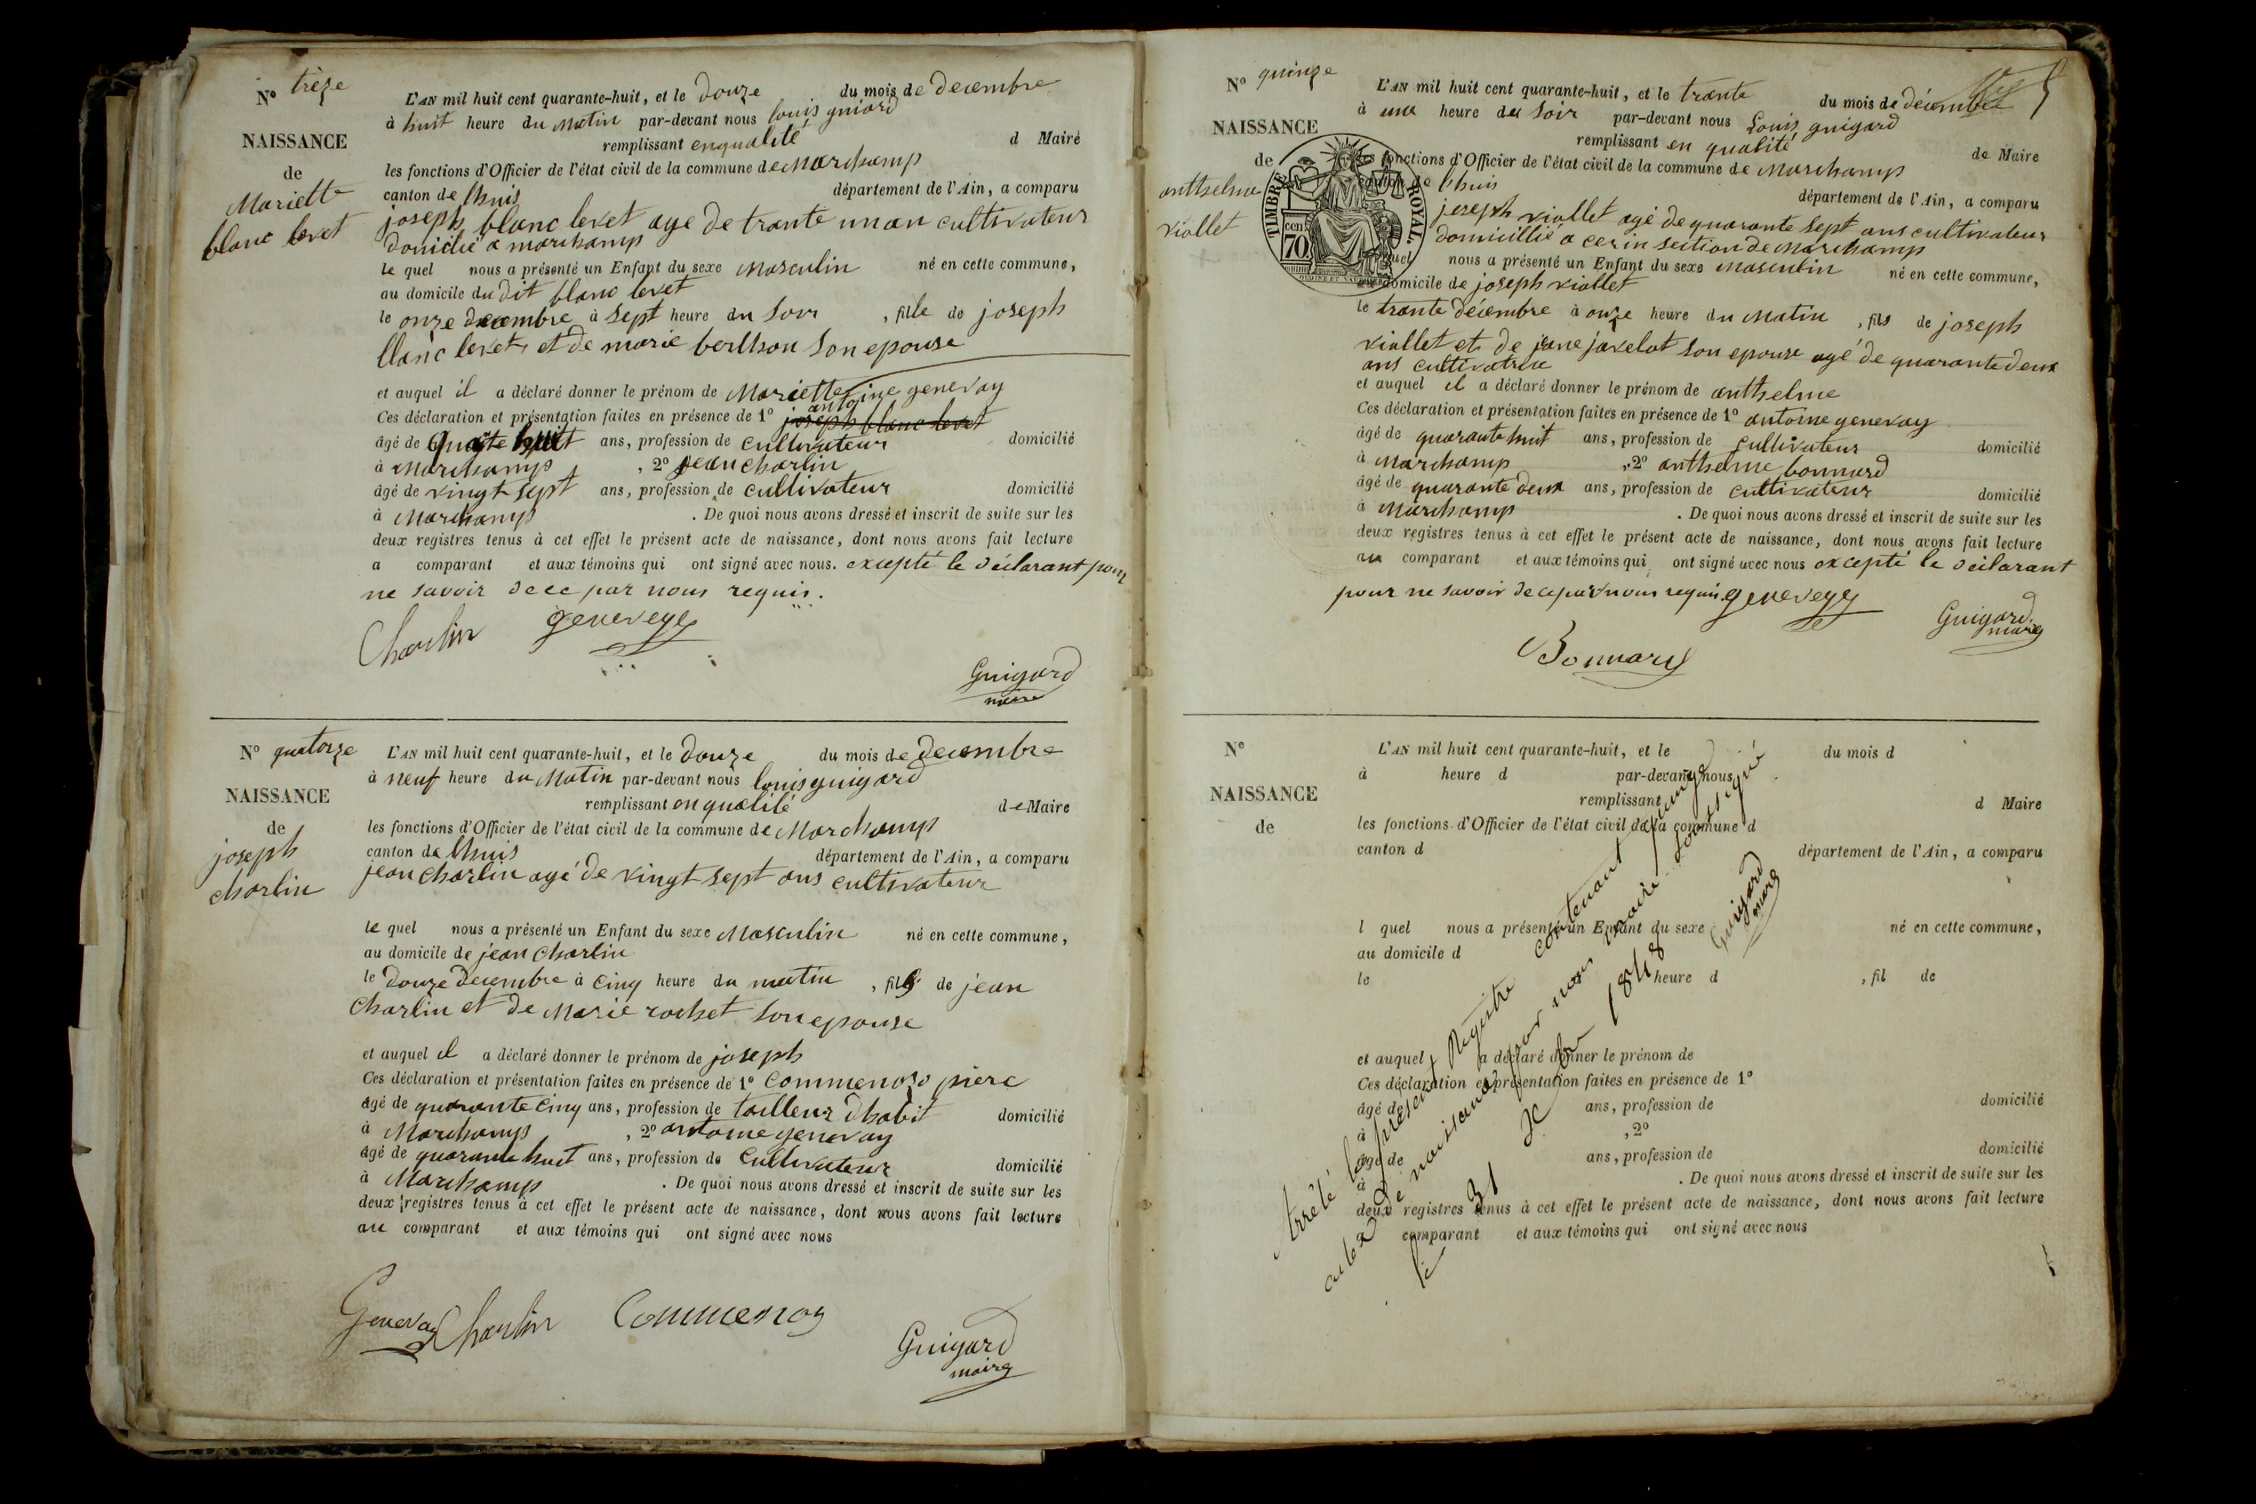 N° trèze
NAISSANCE
de
Mariette
blanc levet
L'AN mil huit cent quarante-huit, et le douze du mois de decembre
à huit heure du Matin par-devant nous louis guiard
remplissant enqualité d Maire
les fonctions d'Officier de l'état civil de la commune de Marchamp
canton de lhuis département de l'Ain, a comparu
joseph blanc levet age de trante un an cultivateur
domicilié a marchamp
le quel nous a présenté un Enfant du sexe Masculin né en cette commune,
au domicile du dit blanc levet
le onze decembre à sept heure du Soir, fille de joseph
blanc levet, et de marie berlhon Son epouse
et auquel il a déclaré donner le prénom de Mariette
antoine genevay
Ces déclaration et présentation faites en présence de 1° joseph blanc levet
âgé de huit ans, profession de cultivateur domicilié
à Marchamp, 2° jean charlin
âgé de vingt sept ans, profession de cultivateur domicilié
à Marchamp. De quoi nous avons dressé et inscrit de suite sur les
deux registres tenus à cet effet le présent acte de naissance, dont nous avons fait lecture
a comparant et aux témoins qui ont signé avec nous. excepté le déclarant pour
ne savoir de ce par nous requis.
Charlin geneveye
Guigard
maire
N° quatorze
NAISSANCE
de
joseph
charlin
L'AN mil huit cent quarante-huit, et le douze du mois de decembre
à neuf heure du Matin par-devant nous louis guigard
remplissant en qualité de Maire
les fonctions d'Officier de l'état civil de la commune de Marchamp
canton de lhuis département de l'Ain, a comparu
jean charlin agé de vingt sept ans cultivateur
le quel nous a présenté un Enfant du sexe Masculin né en cette commune,
au domicile de jean charlin
le douze decembre à cinq heure du matin, fils de jean
charlin et de Marie rochet Son epouse
et auquel il a déclaré donner le prénom de joseph
Ces déclaration et présentation faites en présence de 1° Commenoz piere
âgé de quarante cinq ans, profession de tailleur dhabit domicilié
à Marchamp, 2° antoine genevay
âgé de quarante huit ans, profession de Cultivateur domicilié
à Marchamp. De quoi nous avons dressé et inscrit de suite sur les
deux registres tenus à cet effet le présent acte de naissance, dont nous avons fait lecture
au comparant et aux témoins qui ont signé avec nous
Genevay Charlin Commenoz
Guigard
maire
N° quinze
NAISSANCE
de
anthelme
viollet
TIMBRE ROYAL
70 cen
L'AN mil huit cent quarante-huit, et le trante du mois de décembre
à une heure du Soir par-devant nous Louis guigard
remplissant en qualité de Maire
les fonctions d'Officier de l'état civil de la commune de Marchamp
canton de lhuis département de l'Ain, a comparu
joseph viollet agé de quarante sept ans cultivateur
domicillié a cerin section de Marchamp
lequel nous a présenté un Enfant du sexe Masculin né en cette commune,
au domicile de joseph viollet
le trante décembre à onze heure du Matin, fils de joseph
viollet et de jeane javelot son epouse agé de quarante deux
ans cultivatrice
et auquel il a déclaré donner le prénom de anthelme
Ces déclaration et présentation faites en présence de 1° antoine genevay
âgé de quarante huit ans, profession de cultivateur domicilié
à Marchamp, 2° anthelme bonnard
âgé de quarante deux ans, profession de cultivateur domicilié
à Marchamp. De quoi nous avons dressé et inscrit de suite sur les
deux registres tenus à cet effet le présent acte de naissance, dont nous avons fait lecture
au comparant et aux témoins qui ont signé avec nous excepté le déclarant
pour ne savoir de ce par nous requis. geneveye
Guigard
maire
Bonnard
N°
NAISSANCE
de
L'AN mil huit cent quarante-huit, et le du mois d
à heure d par-devant nous
remplissant d Maire
les fonctions d'Officier de l'état civil de la commune d
canton d département de l'Ain, a comparu
l quel nous a présenté un Enfant du sexe né en cette commune,
au domicile d
le heure d, fil de
et auquel a déclaré donner le prénom de
Ces déclaration et présentation faites en présence de 1°
âgé de ans, profession de domicilié
à, 2°
âgé de ans, profession de domicilié
à. De quoi nous avons dressé et inscrit de suite sur les
deux registres tenus à cet effet le présent acte de naissance, dont nous avons fait lecture
a comparant et aux témoins qui ont signé avec nous
Arrêté le présent Registre contenant quinze
actes de naissance par nous maire soussigné
le 31 Xbre 1848
Guigard
maire